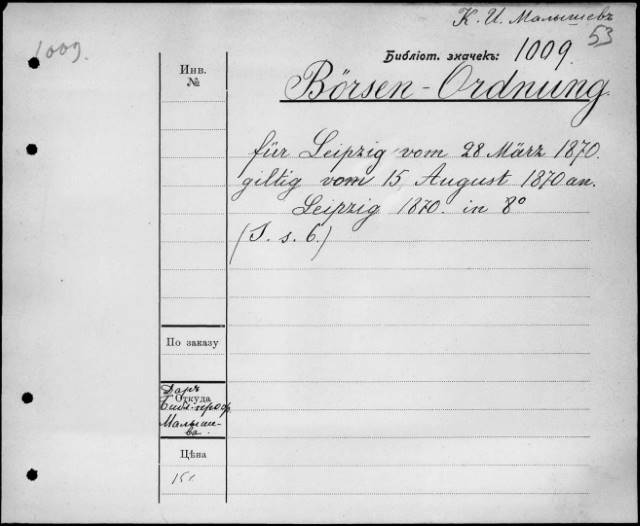 К. И. Малышевъ
53
1009.
Библіот. значекъ: 1009.
Инв.
№
Börsen-Ordnung
für Leipzig vom 28 März 1870.
giltig vom 15 August 1870 an.
Leipzig 1870. in 8°
(S. s. 6.)
По заказу
Откуда
Даръ
Библ. проф.
Малыше-
ва.
Цѣна
15